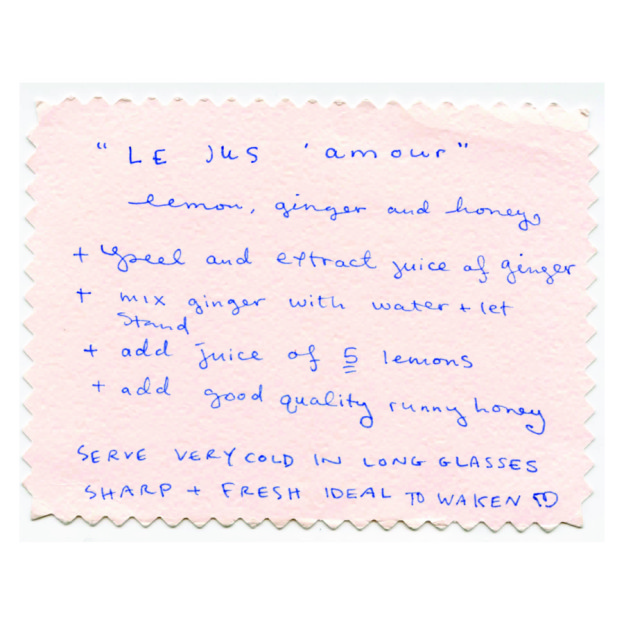 "LE JUS 'amour"
lemon, ginger and honey,
+ peel and extract juice of ginger
+ mix ginger with water + let
stand
+ add juice of 5 lemons
+ add good quality runny honey
SERVE VERY COLD IN LONG GLASSES
SHARP + FRESH IDEAL TO WAKEN ♡